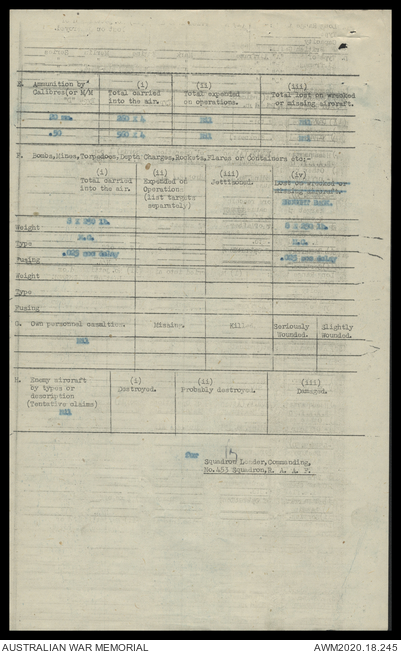 E. Ammunition by (i) (ii) (iii)
Calibres(or M/M Total carried Total expended Total lost on wrecked
into the air. on operations. or missing aircraft.
20 mm. 260 x 4 Nil Nil
.50 560 x 4 Nil Nil
F. Bombs,Mines,Torpedoes,Depth Charges,Rockets,Flares or Containers etc:-
(i) (ii) (iii) (iv)
Total carried Expended on Jettisoned. Lost on wrecked or
into the air. Operation missing aircraft.
(list targets BROUGHT BACK.
separately)
Weight 8 x 250 lb. 8 x 250 lb.
Type M.C. M.C.
Fuzing .025 sec delay .025 sec delay
Weight
Type
Fuzing
G. Own personnel casualties. Missing. Killed Seriously Slightly
Wounded. Wounded.
Nil
H. Enemy aircraft (i) (ii) (iii)
by types or Destroyed. Probably destroyed. Damaged.
description
(Tentative claims)
Nil
for
Squadron Leader,Commanding,
No.453 Squadron,R. A. A. F.
AUSTRALIAN WAR MEMORIAL AWM2020.18.245